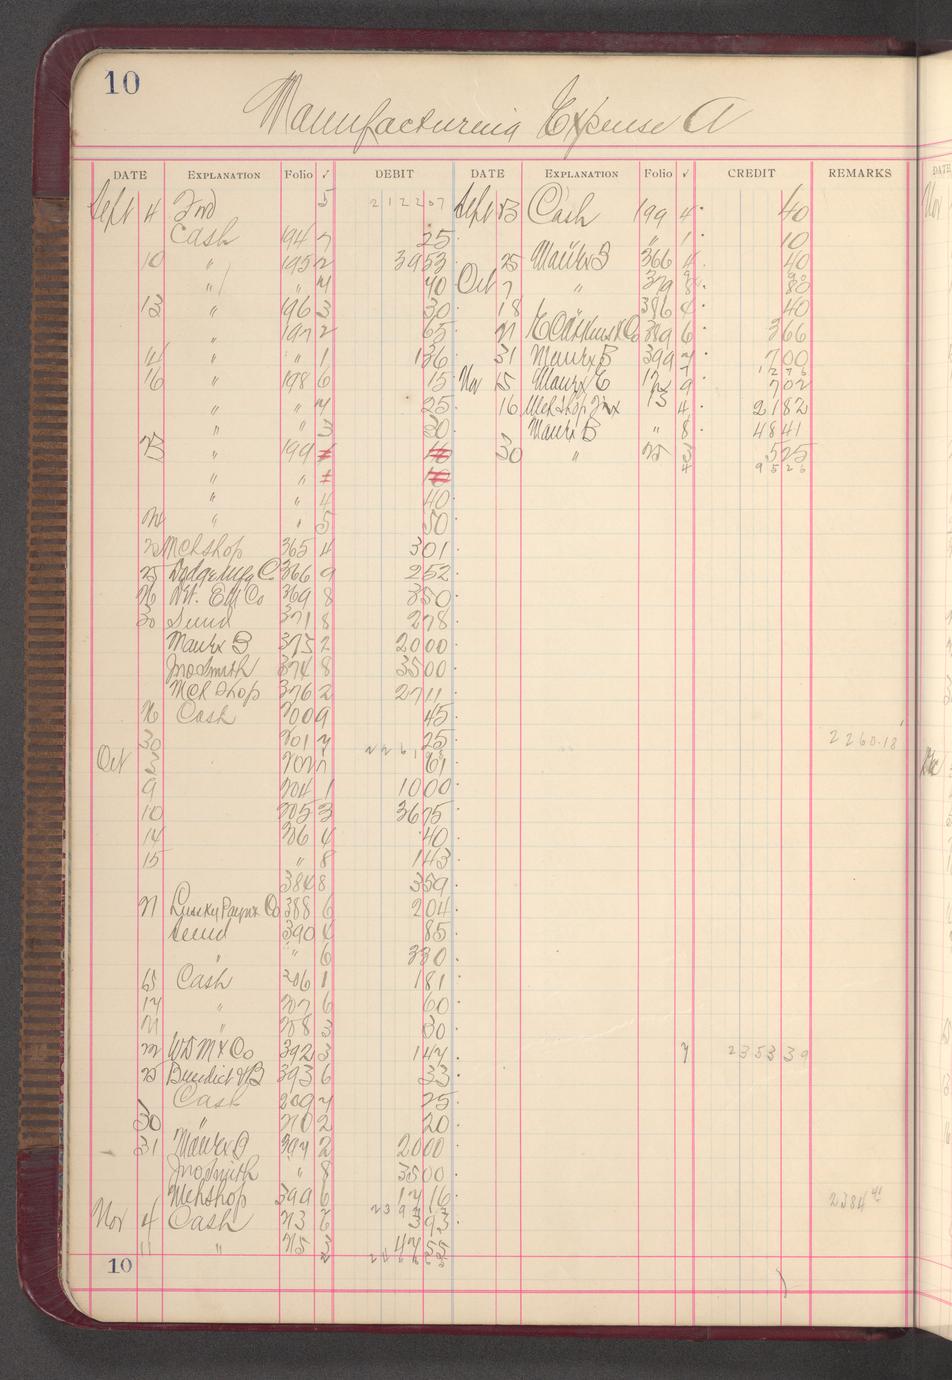 10
Manufacturing Expense A
DATE EXPLANATION Folio √ DEBIT DATE EXPLANATION Folio √ CREDIT REMARKS
Sept 4 Fwd 5 212207 Sept 23 Cash 199 4 40
Cash 194 7 25 " 1 10
10 " 195 2 3953 25 Manfx B 366 4 40
" " 4 40 Oct 7 " 379 8 80
13 " 196 3 30 18 386 4 40
" 197 2 65 21 389 6 366
14 " " 1 136 31 Manfx B 399 7 700
16 " 198 6 15 Nov 15 Manfx E 12 9 702
" " 7 25 16 Mch Shop 13 4 2182
" " 3 30 Manfx B " 8 4841
23 " 199 30 " 25 3 525
" " 4 9526
" " 4 40
24 " " 5 50
25 Mch shop 365 4 301
25 Dodge Mfg C 366 9 252
26 Det. Ell Co 369 8 350
30 Sund 371 8 278
Manfx B 375 2 2000
Jno Smith 374 8 3500
Mch Shop 376 2 2711
26 Cash 200 9 45
30 201 7 25 2260.18
Oct 3 202 7 61
9 204 1 1000
10 205 3 3675
14 206 4 40
15 " 8 143
384 8 359
21 388 6 204
Sund 390 4 85
" " 6 330
15 Cash 206 1 181
17 " 207 6 60
21 " 208 3 30
22 W D M & Co 392 3 147 7 235339
25 Benedict & B 393 6 33
Cash 209 7 25
30 " 210 2 20
31 Manfx B 397 2 2000
Jno Smith " 8 3500
Mch shop 399 6 1716 2384 41
Nov 4 Cash 213 6 393
11 " 215 3 4755
10